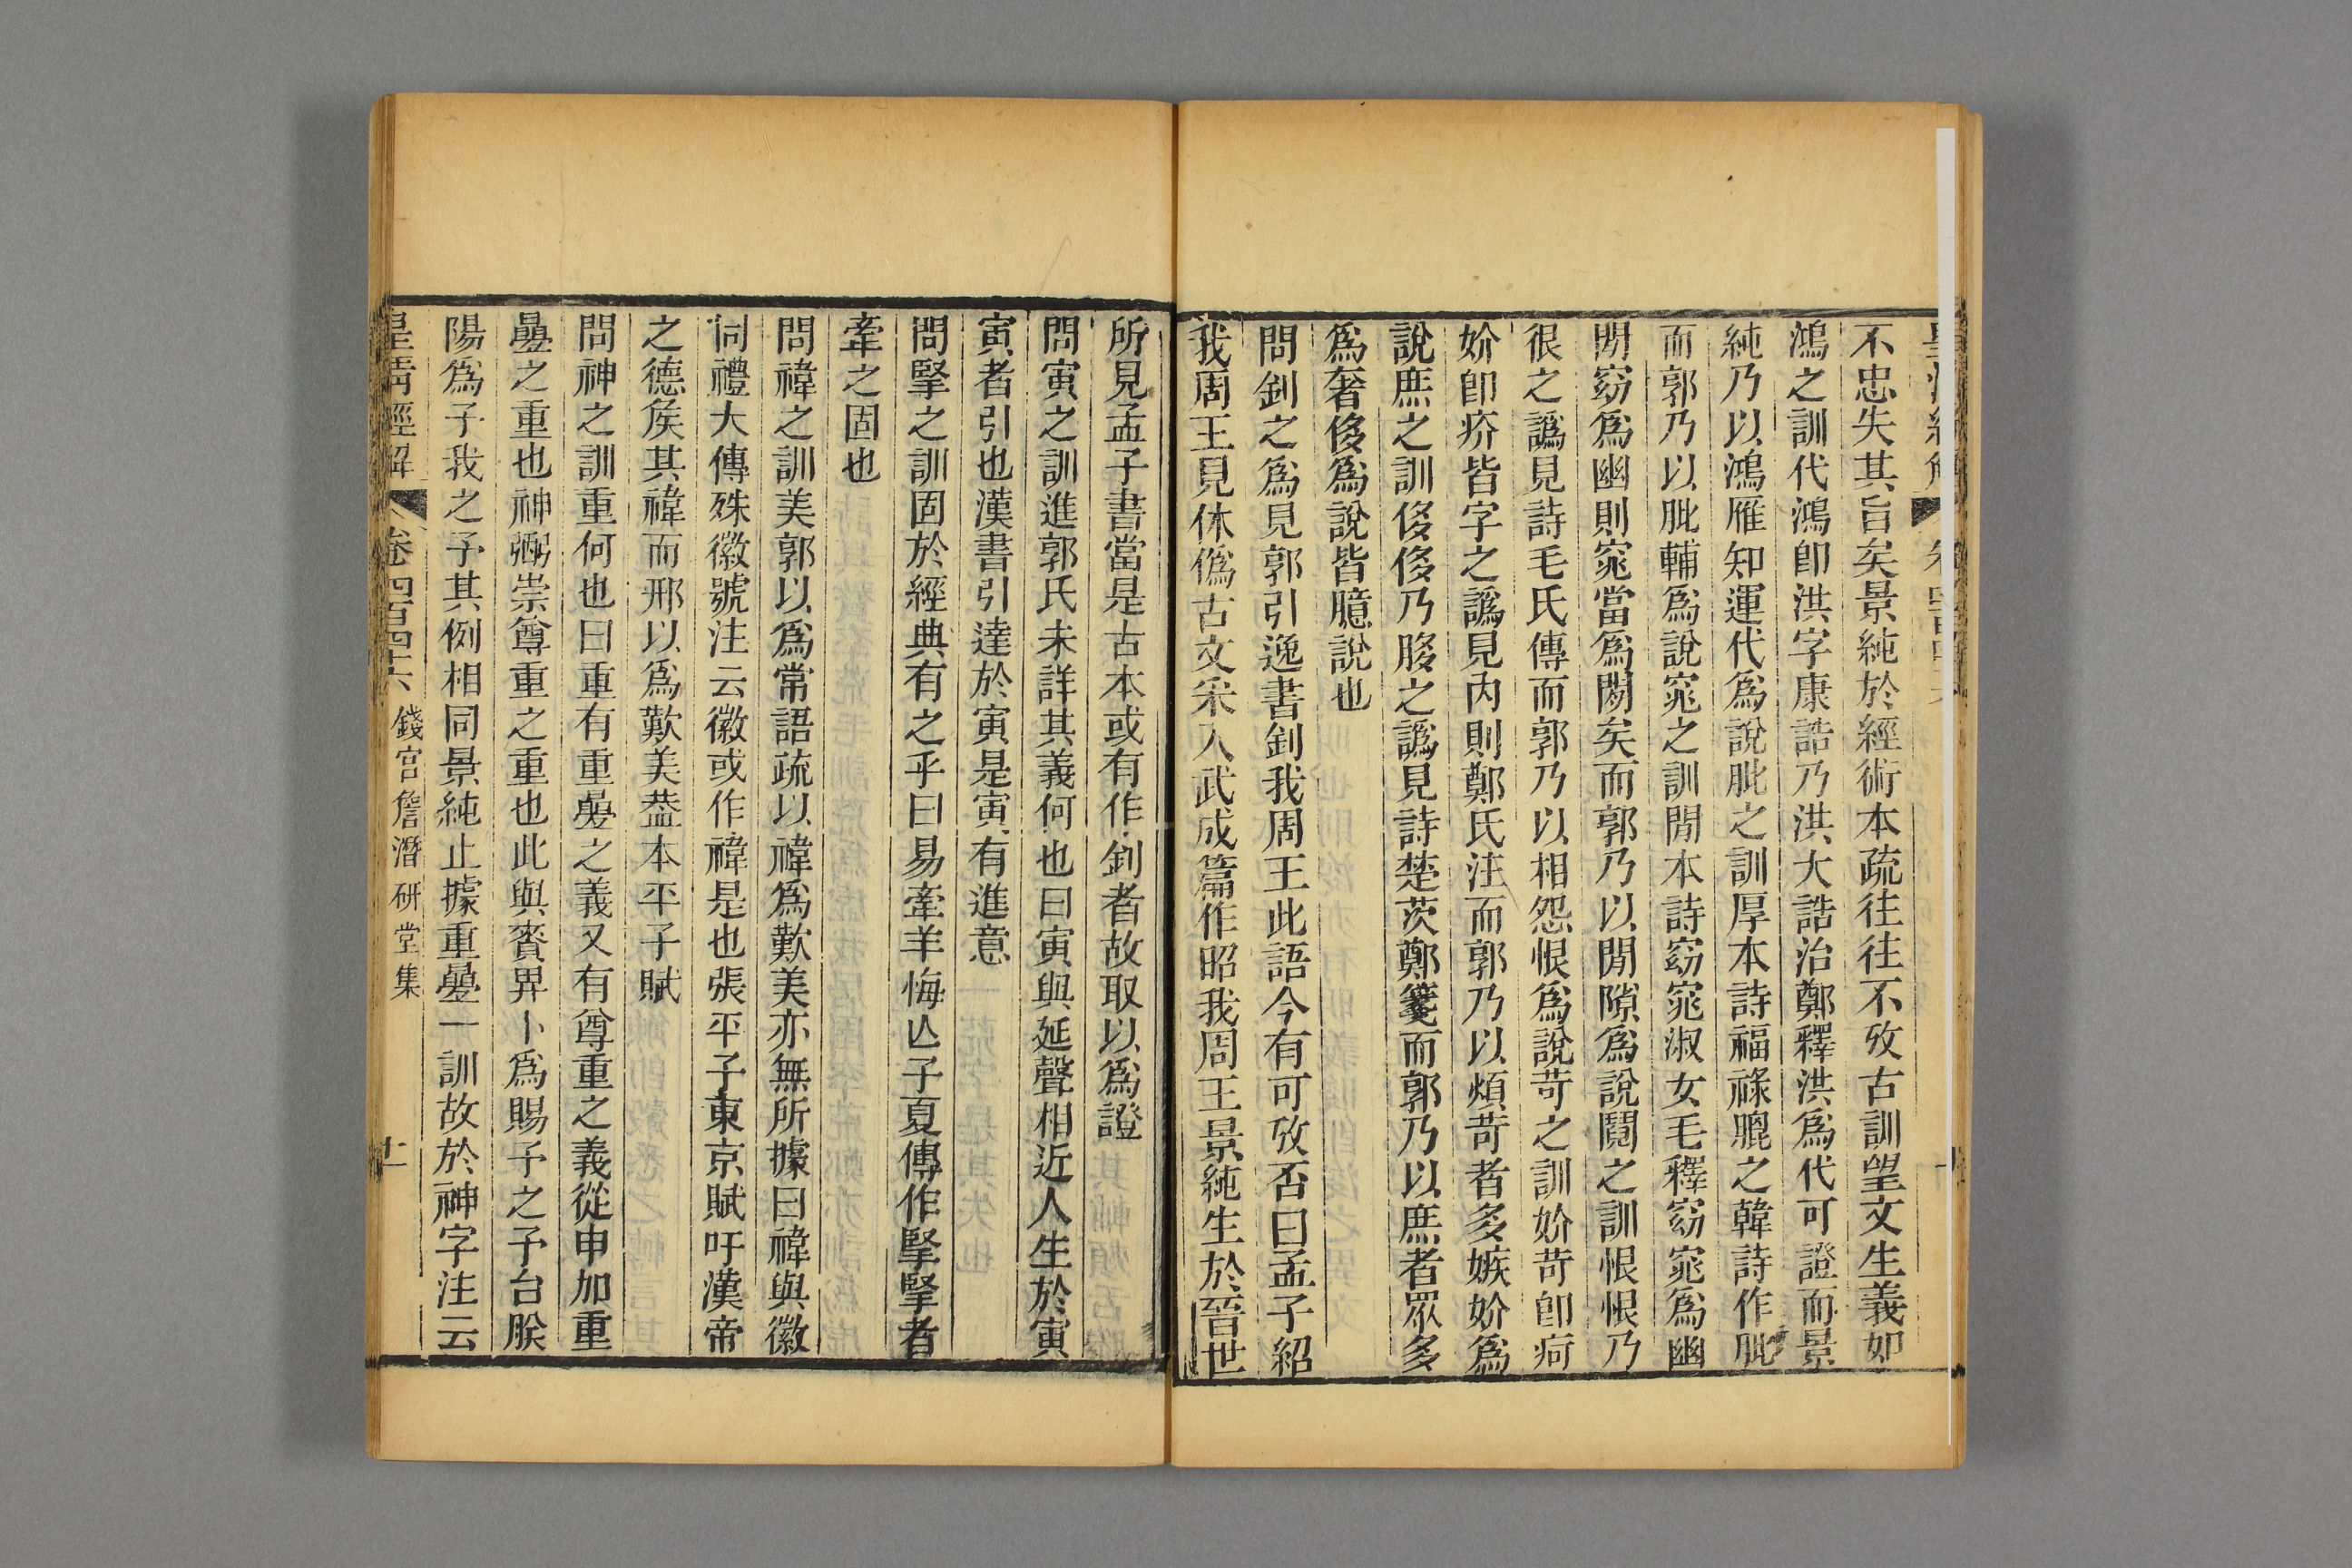 不忠失其旨矣景純於經術本疏往往不攷古訓望文生義如
鴻之訓代鴻卽洪字康誥乃洪大誥治鄭釋洪爲代可證而景
純乃以鴻雁知運代爲說肶之訓厚本詩福祿膍之韓詩作肶
而郭乃以肶輔爲說窕之訓閒本詩窈窕淑女毛釋窈窕爲幽
閒窈爲幽則窕當爲閒矣而郭乃以閒隙爲說鬩之訓恨恨乃
很之譌見詩毛氏傳而郭乃以相怨恨爲說苛之訓妎苛卽疴
妎卽疥皆字之譌見內則鄭氏注而郭乃以煩苛者多嫉妎爲
說庶之訓侈侈乃胺之譌見詩楚茨鄭箋而郭乃以庶者眾多
爲奢侈爲說皆臆說也
問釗之爲見郭引逸書釗我周王此語今有可攷否曰孟子紹
我周王見休僞古文采入武成篇作昭我周王景純生於晉世
所見孟子書當是古本或有作釗者故取以爲證
問寅之訓進郭氏未詳其義何也曰寅與延聲相近人生於寅
寅者引也漢書引達於寅是寅有進意
問掔之訓固於經典有之乎曰易牽羊悔亾子夏傳作掔掔者
牽之固也
問禕之訓美郭以爲常語疏以禕爲歎美亦無所據曰禕與徽
同禮大傳殊徽號注云徽或作禕是也張平子東京賦吁漢帝
之德矦其禕而邢以爲歎美葢本平子賦
問神之訓重何也曰重有重曡之義又有尊重之義從申加重
曡之重也神弼崇尊重之重也此與賚畀卜爲賜予之予台朕
陽爲予我之予其例相同景純止據重曡一訓故於神字注云
皇清經解 卷四百四十六 錢宮詹潛研堂集 十一